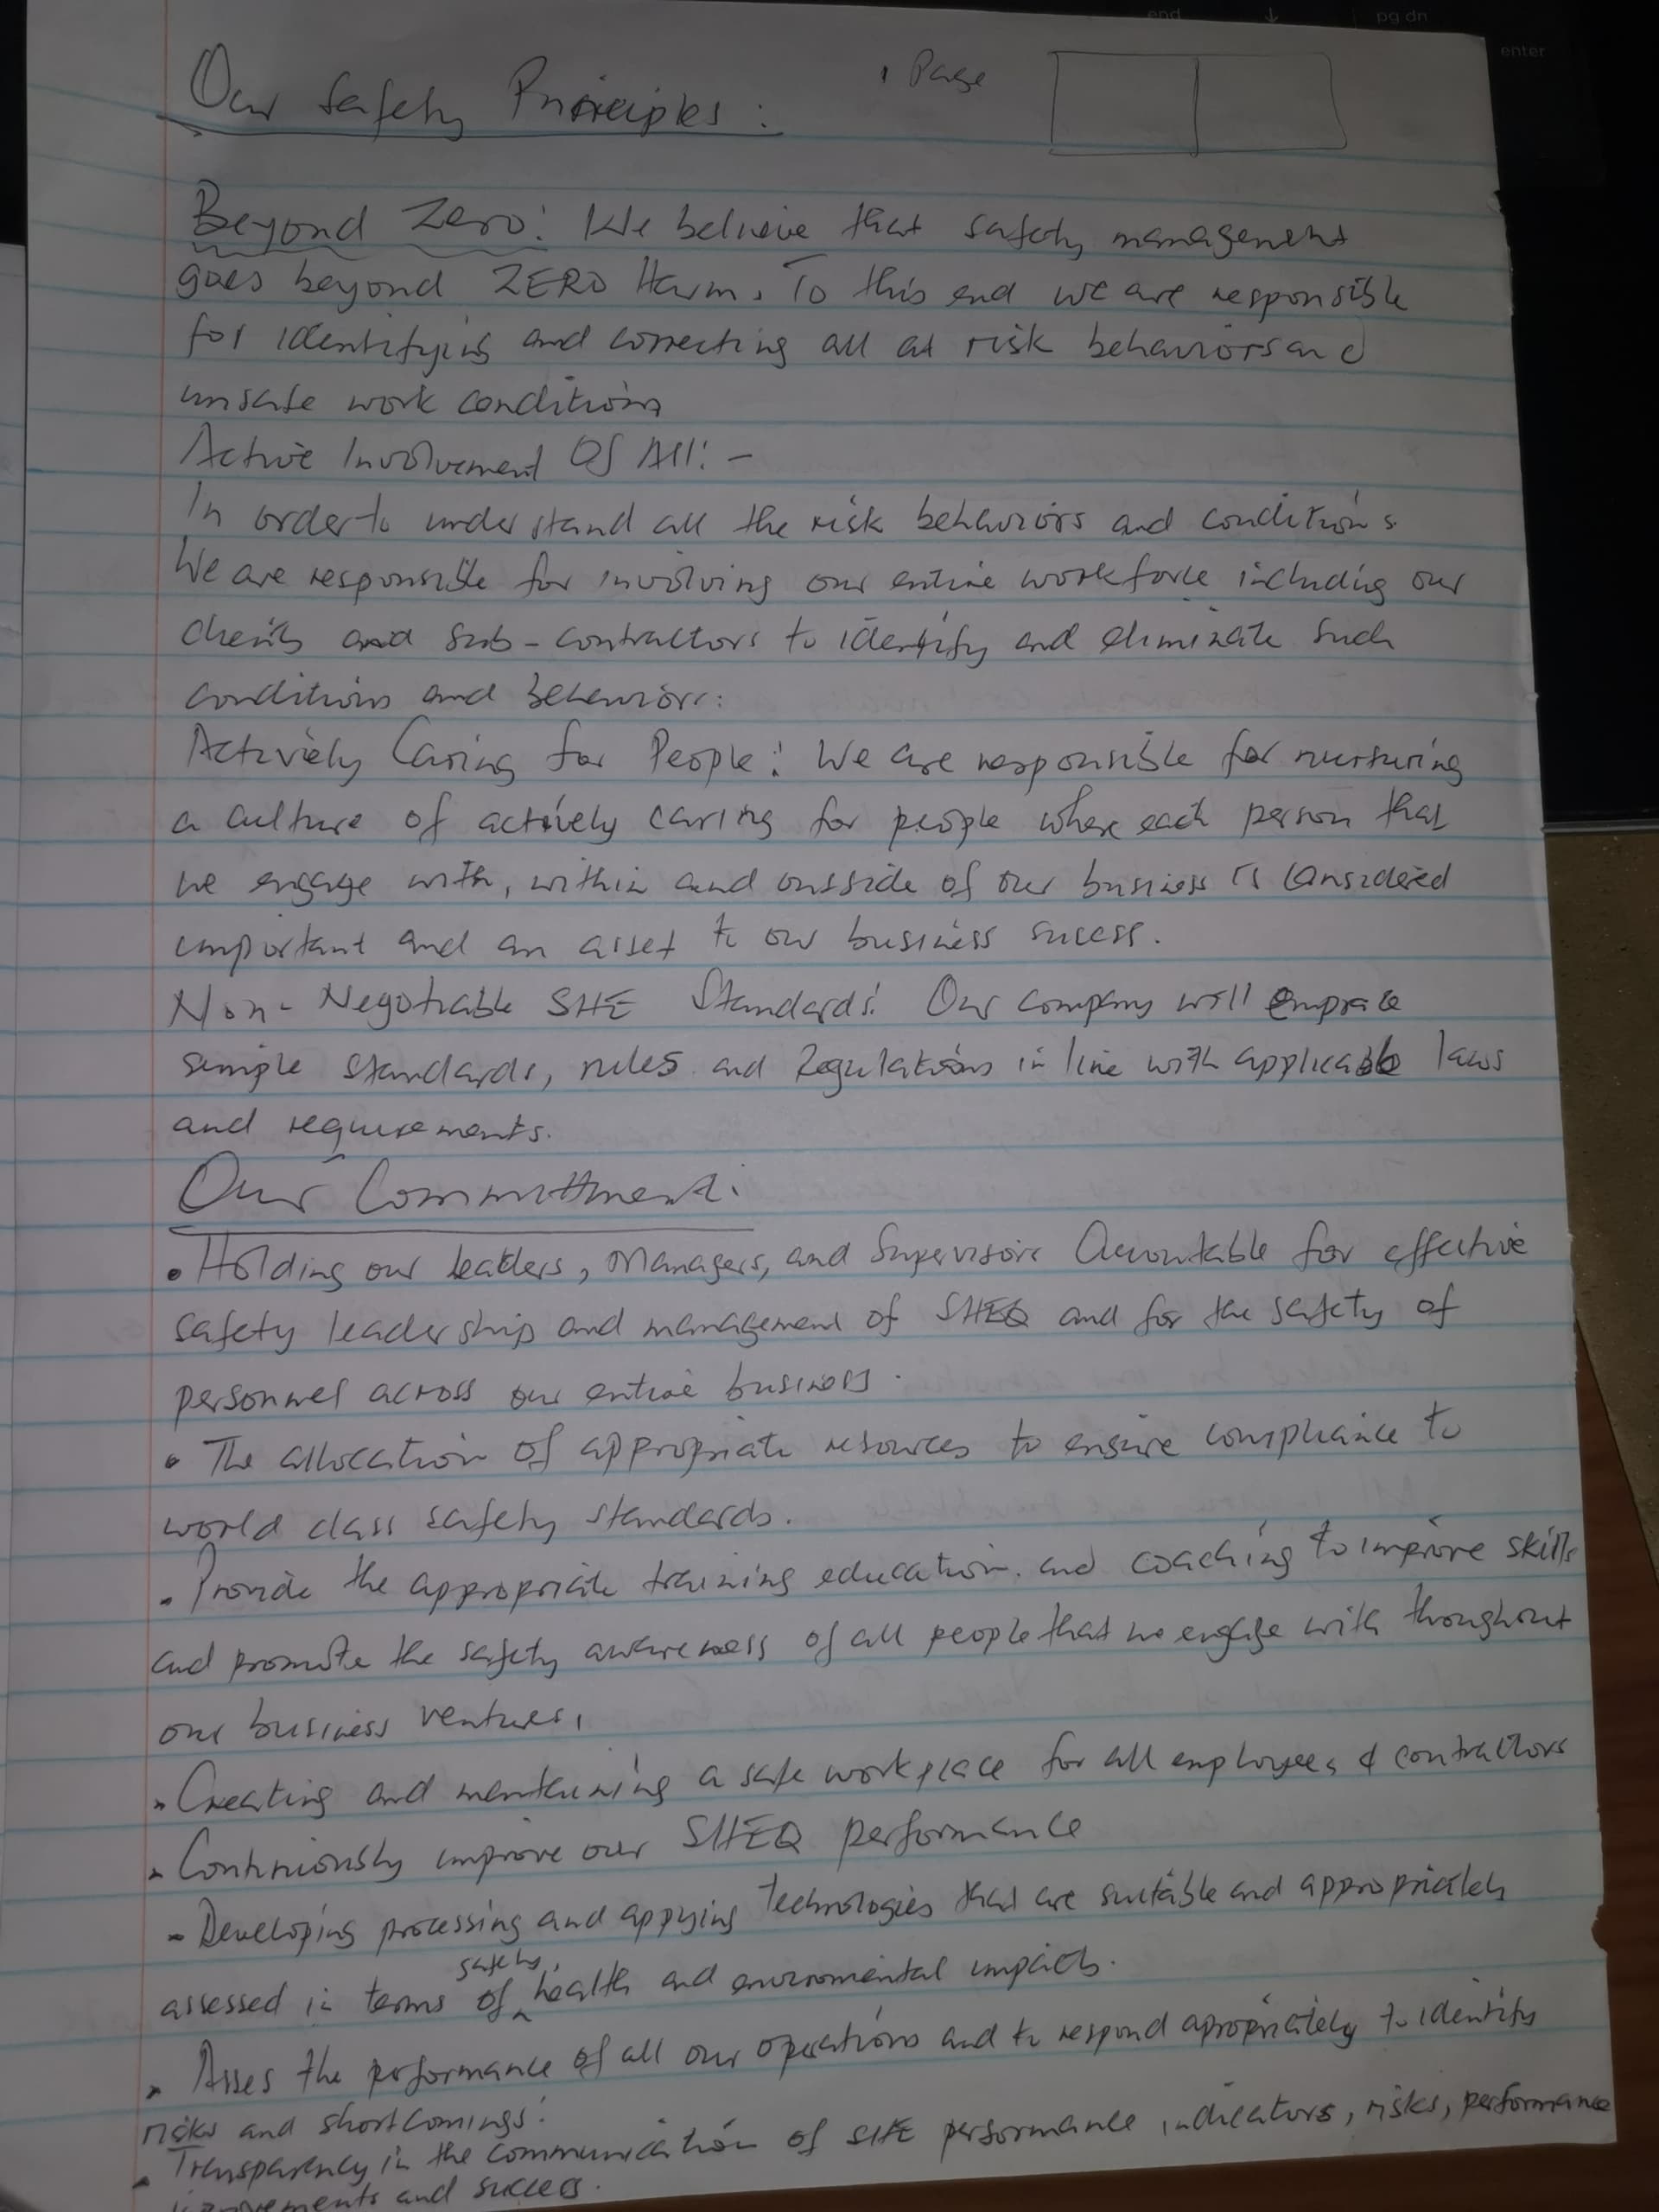 Our Safety Principles :
Page
Beyond Zero: We believe that safety management
goes beyond ZERO Harm. To this end we are responsible
for identifying and correcting all at risk behaviors and
unsafe work conditions
Active Involvement Of All: -
In order to understand all the risk behaviors and conditions.
We are responsible for involving our entire workforce including our
clients and sub-contractors to identify and eliminate such
conditions and behaviors:
Actively Caring for People: We are responsible for nurturing
a culture of actively caring for people where each person that
we engage with, within and outside of our business is considered
important and an asset to our business sucess.
Non-Negotiable SHE Standards: Our company will emprace
simple standards, rules and Regulations in line with applicable laws
and requirements.
Our Committment:
• Holding our leaders, Managers, and Supervisors Accountable for effective
safety leadership and management of SHEQ and for the safety of
personnel across our entire business.
• The allocation of appropriate resources to ensure compliance to
world class safety standards.
• Provide the appropriate training education, and coaching to improve skills
and promote the safety awareness of all people that we engage with throughout
our business ventures,
• Creating and maintaining a safe workplace for all employees & contractors
• Continiously improve our SHEQ performance
- Developing processing and applying Technologies that are suitable and appropriately
assessed in terms of safety, health and enviromental impacts.
• Asses the performance of all our operations and to respond apropriately to identify
risks and shortcomings.
• Transparency in the communication of SHE performance indicators, risks, performance
improvements and success.
end
↓
pg dn
enter